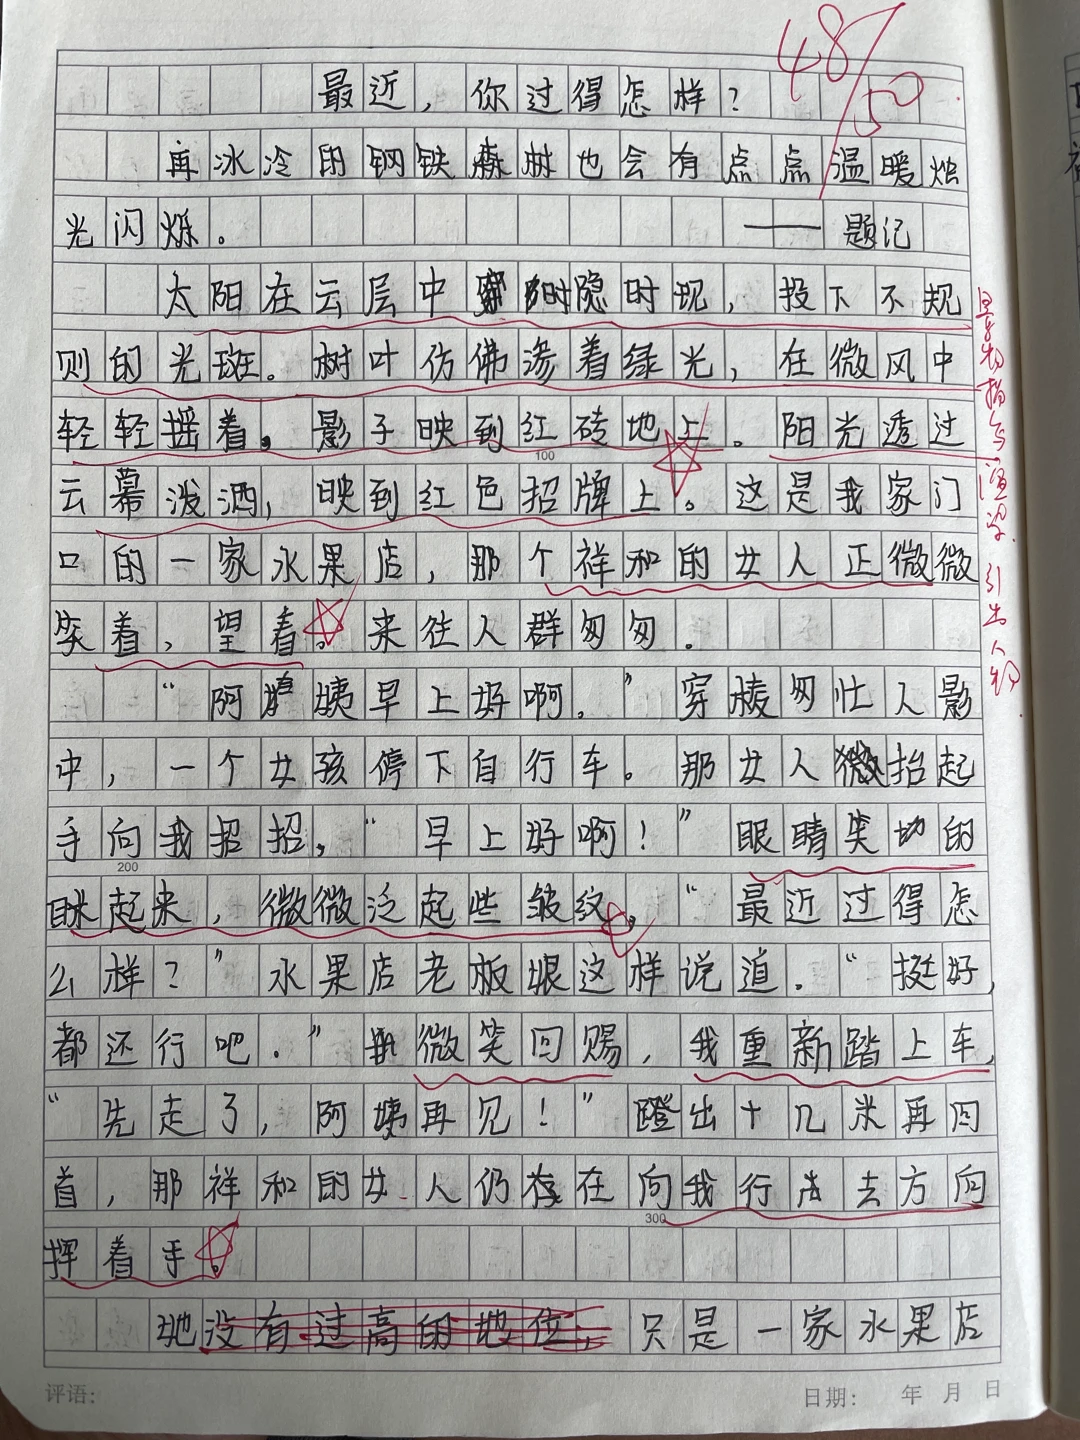 48/50
最近，你过得怎样？
再冰冷的钢铁森林也会有点点温暖烛
光闪烁。 ——题记
太阳在云层中时隐时现，投下不规
则的光斑。树叶仿佛渗着绿光，在微风中
轻轻摇着。影子映到红砖地上。阳光透过
100
云幕泼洒，映到红色招牌上。这是我家门
口的一家水果店，那个祥和的女人正微微
笑着，望着。来往人群匆匆.
“阿姨早上好啊。”穿梭匆忙人影
中，一个女孩停下自行车。那女人抬起
手向我招招，“早上好啊！”眼睛笑的
200
眯起来，微微泛起些皱纹。“最近过得怎
么样？”水果店老板娘这样说道.“挺好，
都还行吧.”微笑回赐，我重新踏上车，
“先走了，阿姨再见！”蹬出十几米再回
首，那祥和的女人仍在向我行去方向
300
挥着手。
她没有过高的地位，只是一家水果店
景物描写渲染.引出人物.
评语: 日期: 年 月 日